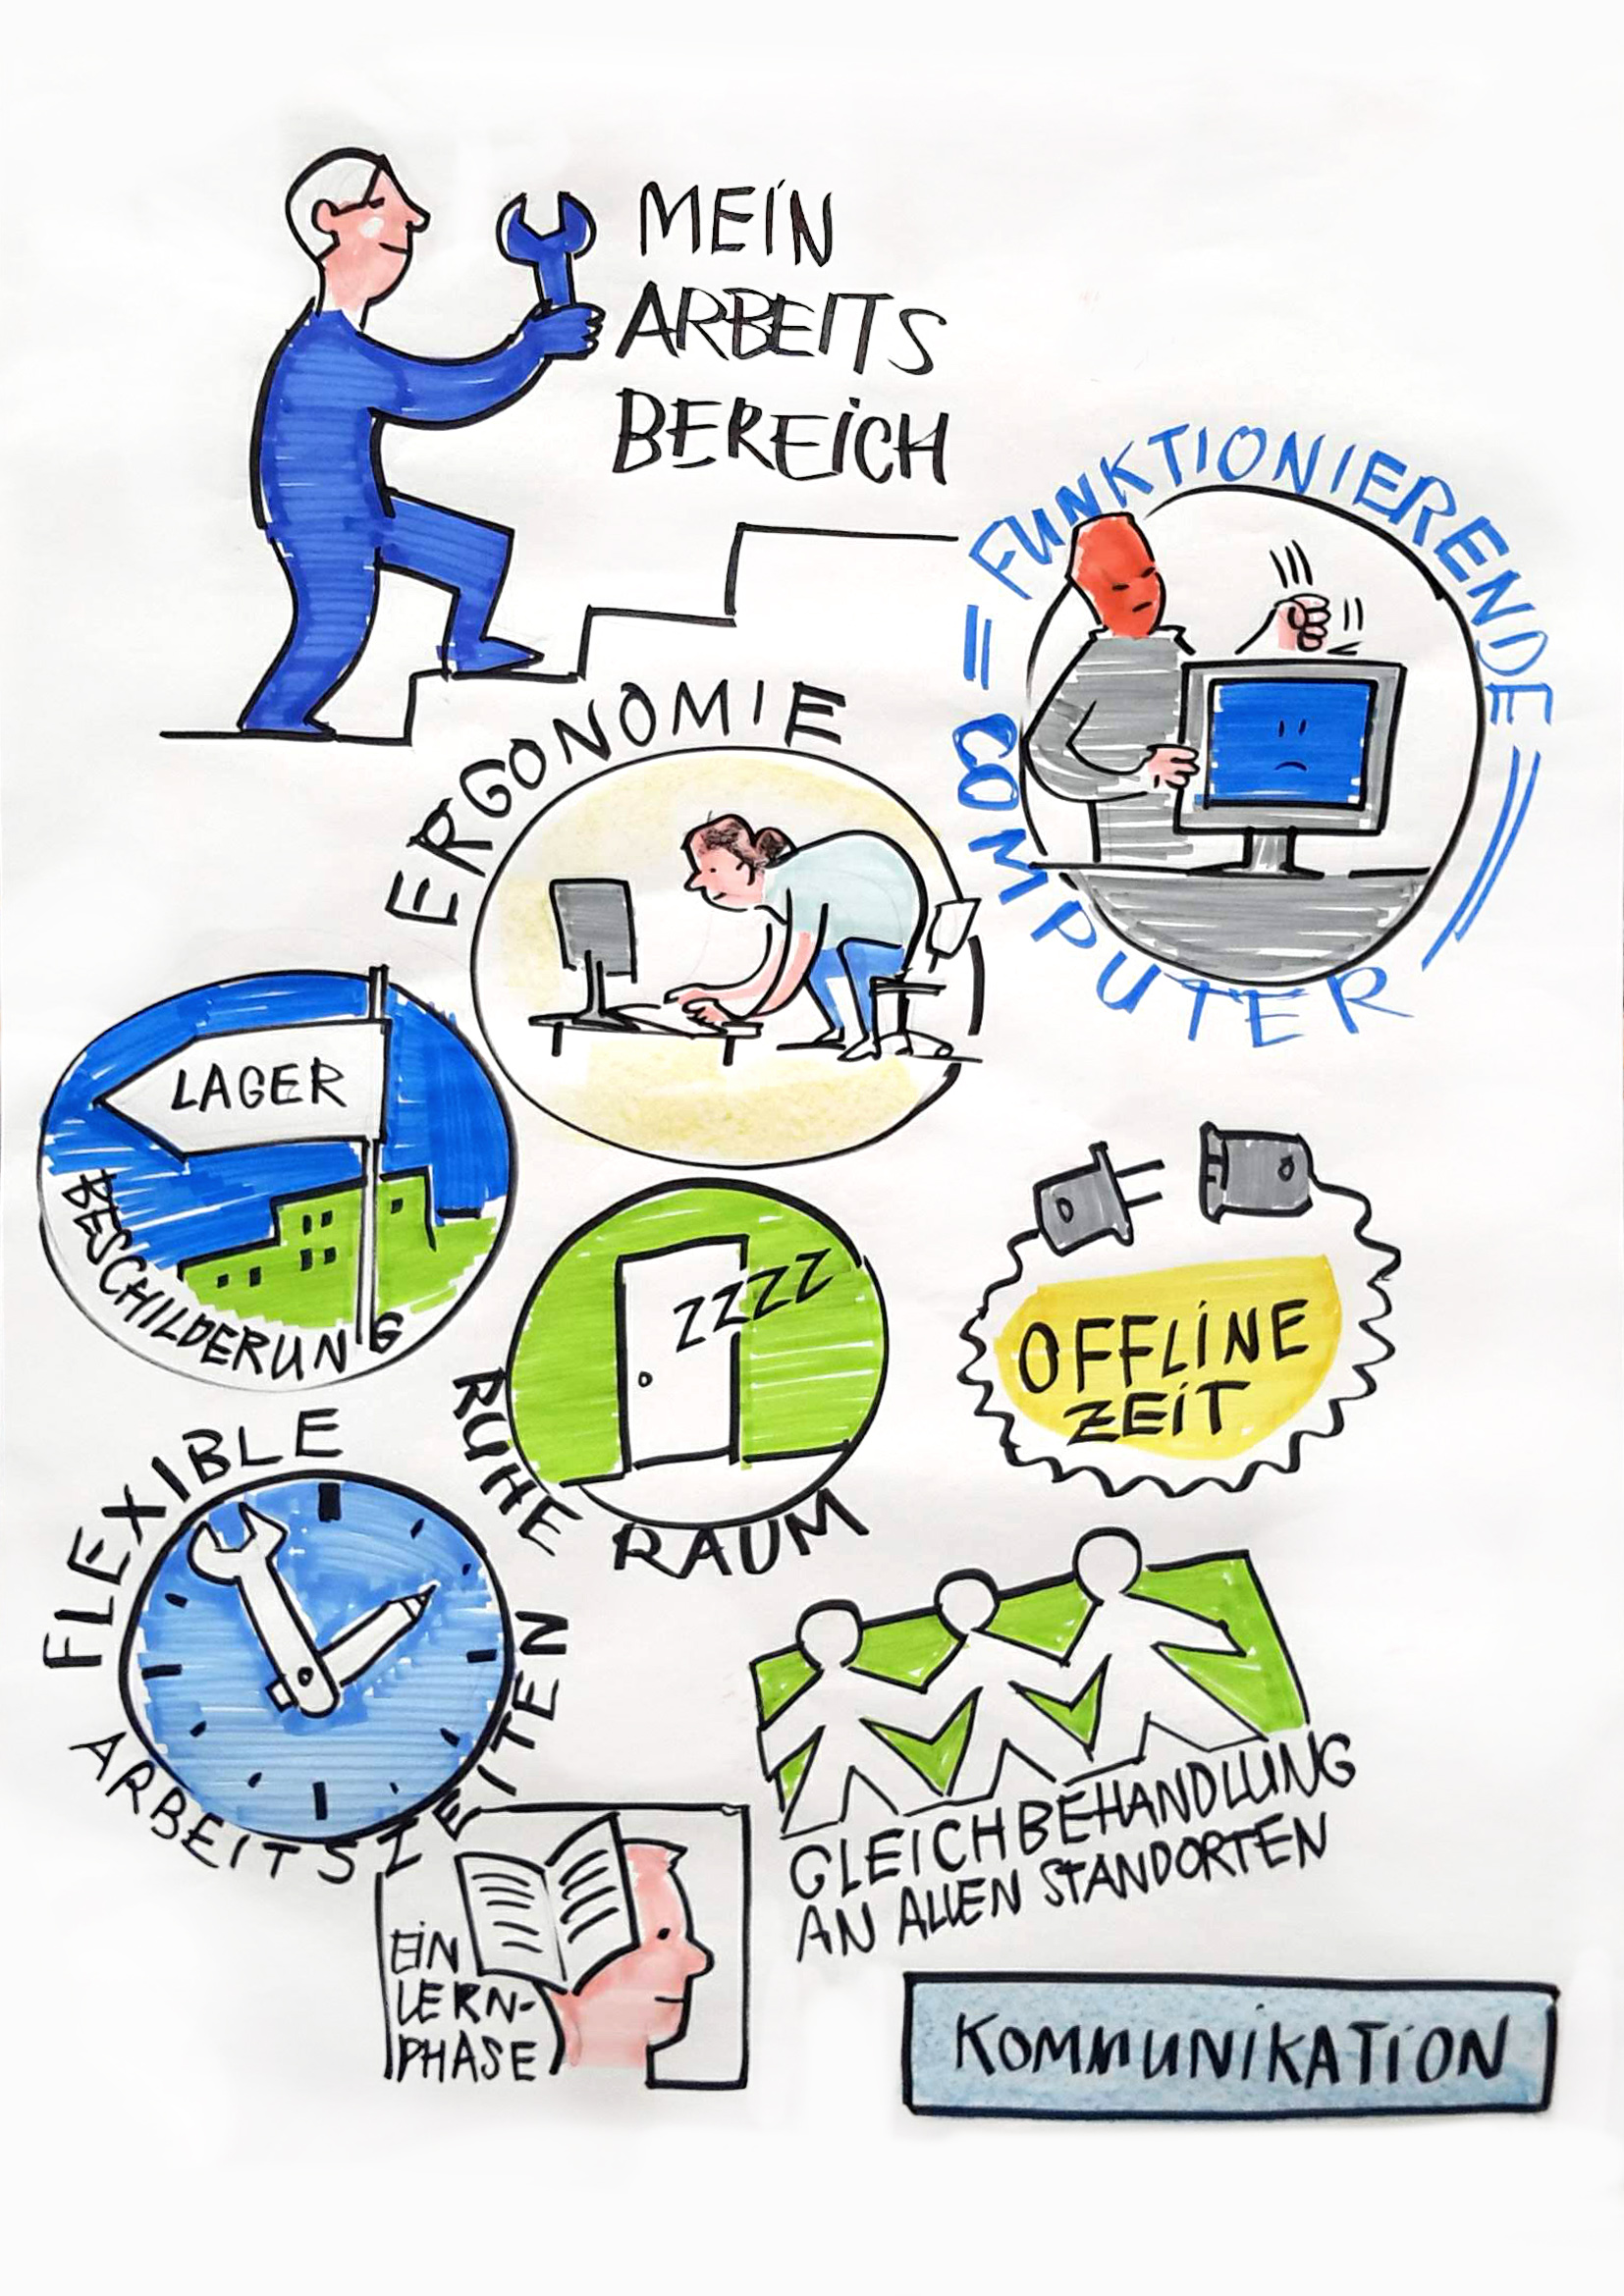 MEIN
ARBEITS
BEREICH
FUNKTIONIERENDE
COMPUTER
ERGONOMIE
LAGER
BESCHILDERUNG
ZZZZ
RUHE RAUM
OFFLINE
ZEIT
FLEXIBLE
ARBEITSZEITEN
GLEICHBEHANDLUNG
AN ALLEN STANDORTEN
EIN
LERN-
PHASE
KOMMUNIKATION